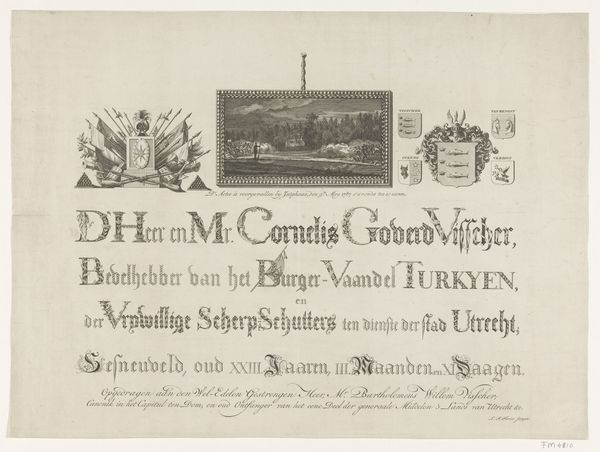 VISSCHER
VAN BENGST
D'Actie is voorgevallen bij Jutphaas, den 9.n Mey 1787 's avonds ten 10 uuren.
D'Heer en Mr. Cornelis Goderd Visscher,
Bevelhebber van het Burger-Vaandel TURKYEN,
en
der Vrywillige ScherpSchutters ten dienste der stad Utrecht;
Gesneuveld, oud XXIII Jaaren, III Maanden en XI Daagen.
Opgedragen aan den Wel-Edelen Gestrengen Heer, Mr. Bartholomeus Willem Visscher,
Canonik in het Capittel ten Dom, en oud Ontfanger van het eene Deel der generaale Middelen 's Lands van Utrecht &c.
sculps.
FM 4810